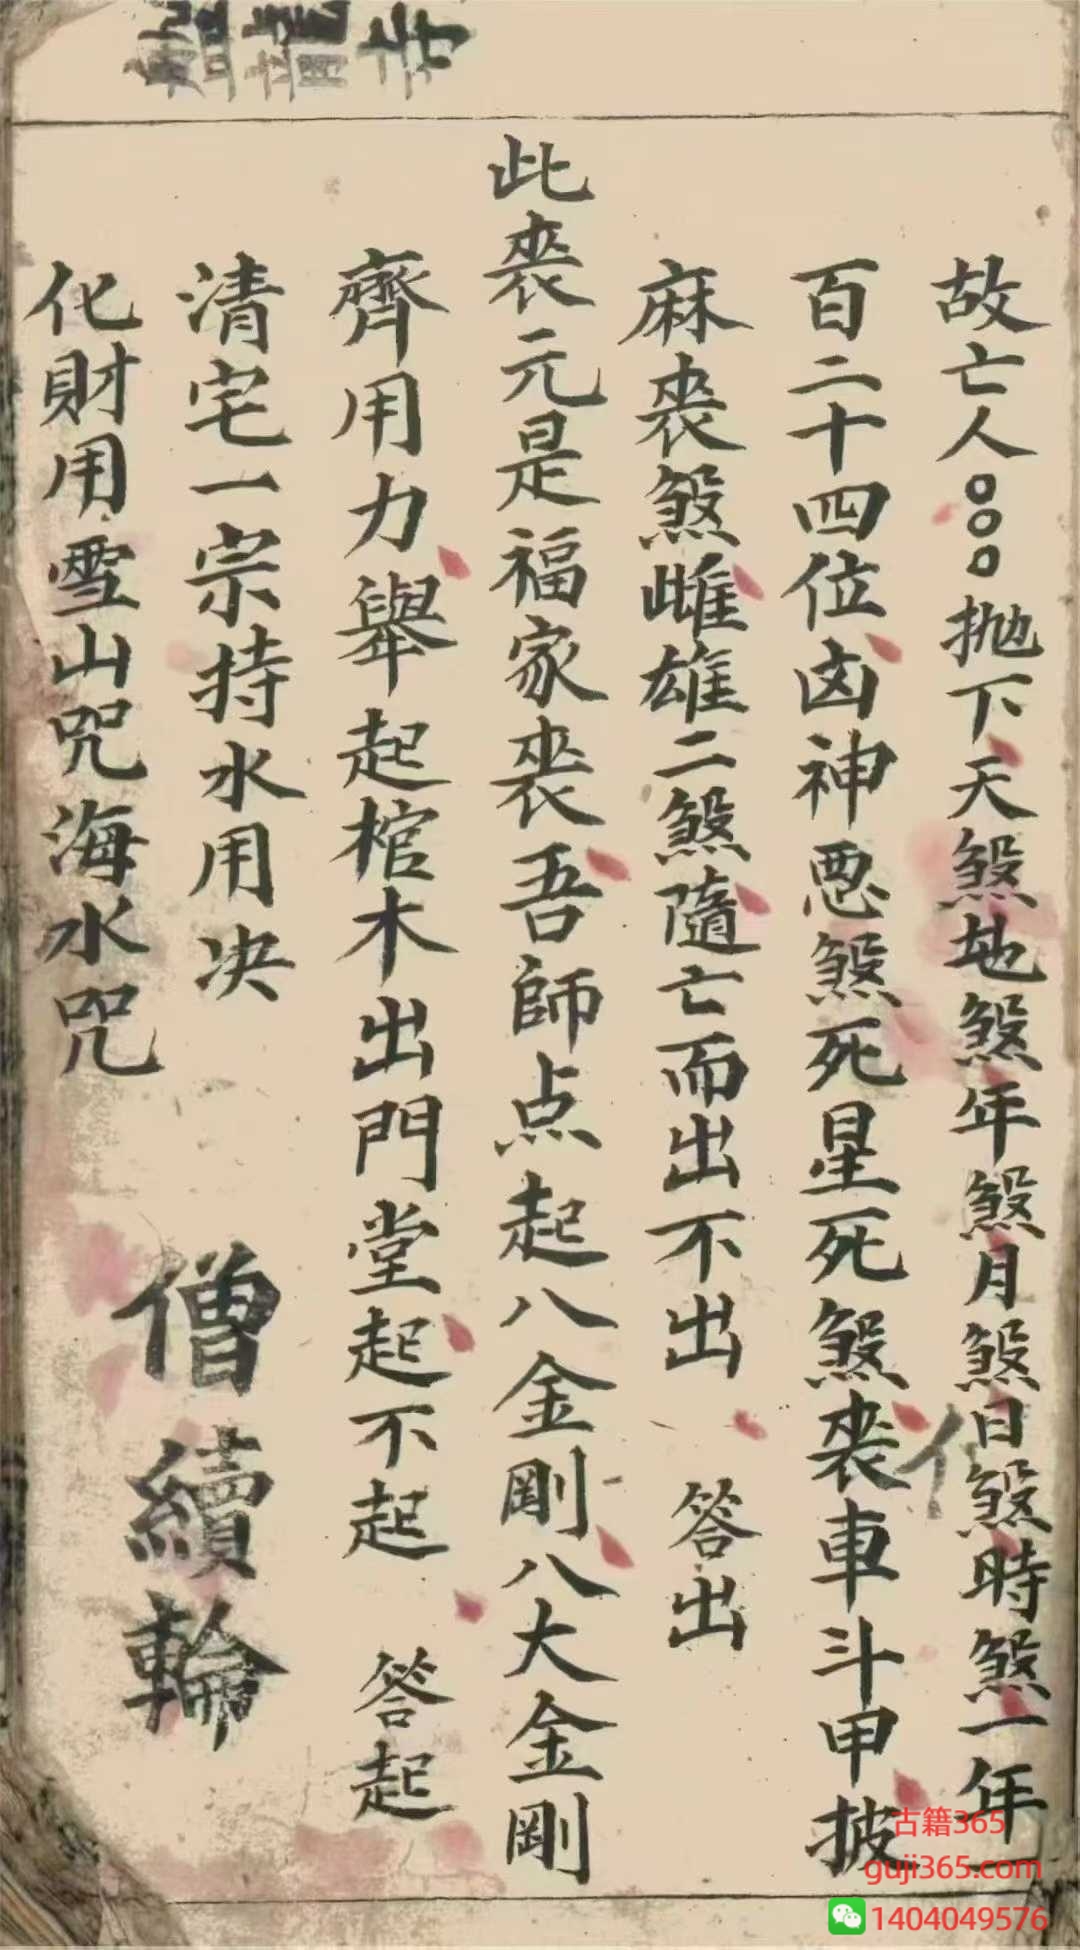 故亡人○○○抛下天煞地煞年煞月煞日煞時煞一年一
百二十四位凶神悪煞死星死煞丧車斗甲披
麻丧煞雌雄二煞隨亡而出不出 答出
此丧元是福家丧吾師点起八金剛八大金剛
齊用力舉起棺木出門堂起不起 答起
清宅一宗持水用决
化財用雪山咒海水咒
僧續輪
古籍365
guji365.com
1404049576